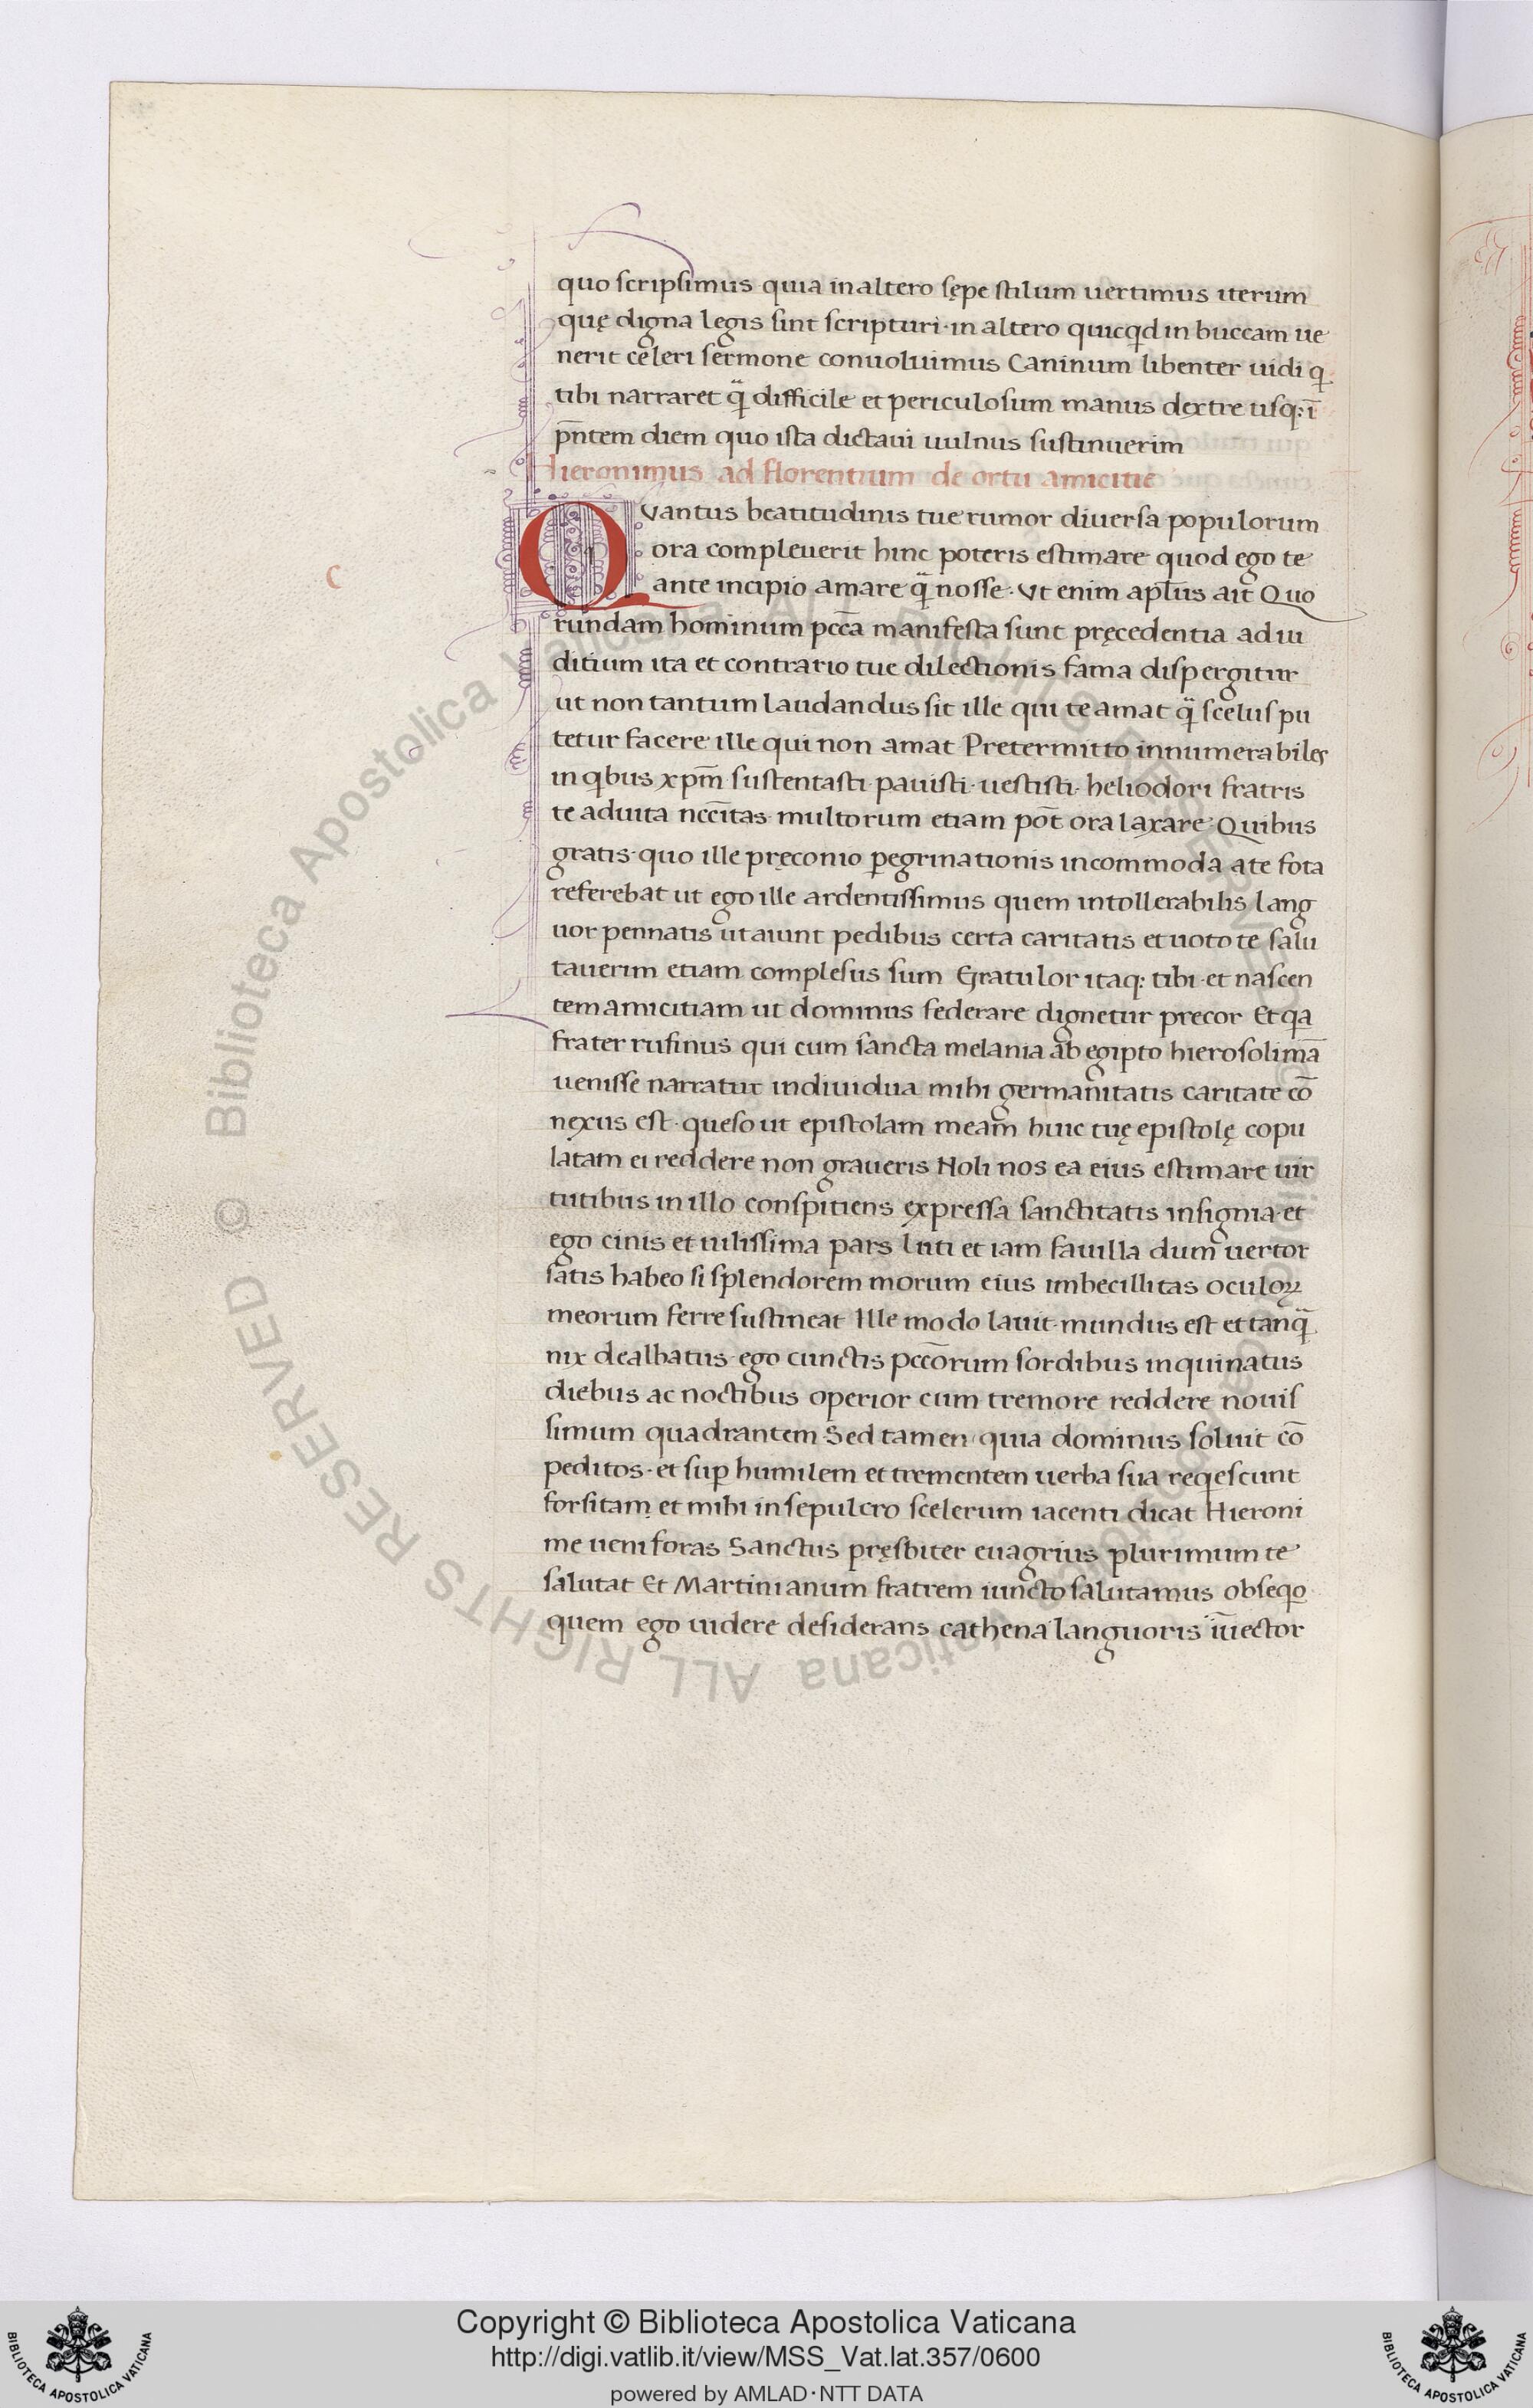 quo scripsimus quia in altero sępe stilum uertimus iterum
quę digna legis sint scripturi · in altero quicqd in buccam ue
nerit celeri sermone conuoluimus Caninum libenter uidi q
tibi narraret q̃ difficile et periculosum manus dextre usq: ī
pñtem diem quo ista dictaui uulnus sustinuerim
Hieronimus ad florentium de ortu amicitie
QVantus beatitudinis tue rumor diuersa populorum
ora compleuerit hinc poteris estimare quod ego te
c
ante incipio amare q̃ nosse · Vt enim apl̃us ait Quo
rundam hominum pcc̃a manifesta sunt pręcedentia ad iu
ditium ita et contrario tue dilectionis fama dispergitur
ut non tantum laudandus sit ille qui te amat q̃ scelus pu
tetur facere ille qui non amat Pretermitto innumerabiles
in qbus xp̃m sustentasti · pauisti · uestisti · heliodori fratris
te adiuta ncc̃itas multorum etiam pot̃ ora laxare · Quibus
gratis · quo ille pręconio p̱egrinationis incommoda a te fota
referebat ut ego ille ardentissimus quem intollerabilis lang
uor pennatis ut aiunt pedibus certa caritatis et uoto te salu
tauerim etiam complesus sum Gratulor itaq: tibi · et nascen
tem amicitiam ut dominus federare dignetur precor Et qa
frater rufinus qui cum sancta melania ab egipto hierosolimā
uenisse narratur indiuidua mihi germanitatis caritate cō
nexus est · queso ut epistolam meam huic tuę epistolę copu
latam ei reddere non graueris Noli nos ea eius estimare uir
tutibus in illo conspitiens expressa sanctitatis insignia · et
ego cinis et uilissima pars luti et iam fauilla dum uertor
satis habeo si splendorem morum eius imbecillitas oculoꝝ
meorum ferre sustineat Ille modo lauit · mundus est et tanq̃
nix dealbatus · ego cunctis pcc̃orum sordibus inquinatus
diebus ac noctibus operior cum tremore reddere nouis
simum quadrantem Sed tamen quia dominus soluit cō
peditos · et sup̱ humilem et trementem uerba sua reqescunt
forsitam et mihi in sepulcro scelerum iacenti dicat Hieroni
me ueni foras Sanctus pręsbiter euagrius plurimum te
salutat Et Martinianum fratrem iuncto salutamus obseqo
quem ego uidere desiderans cathena languoris īuector
© Biblioteca Apostolica Vaticana ALL RIGHTS RESERVED
Copyright © Biblioteca Apostolica Vaticana
http://digi.vatlib.it/view/MSS_Vat.lat.357/0600
powered by AMLAD · NTT DATA
BIBLIOTECA APOSTOLICA VATICANA
BIBLIOTECA APOSTOLICA VATICANA